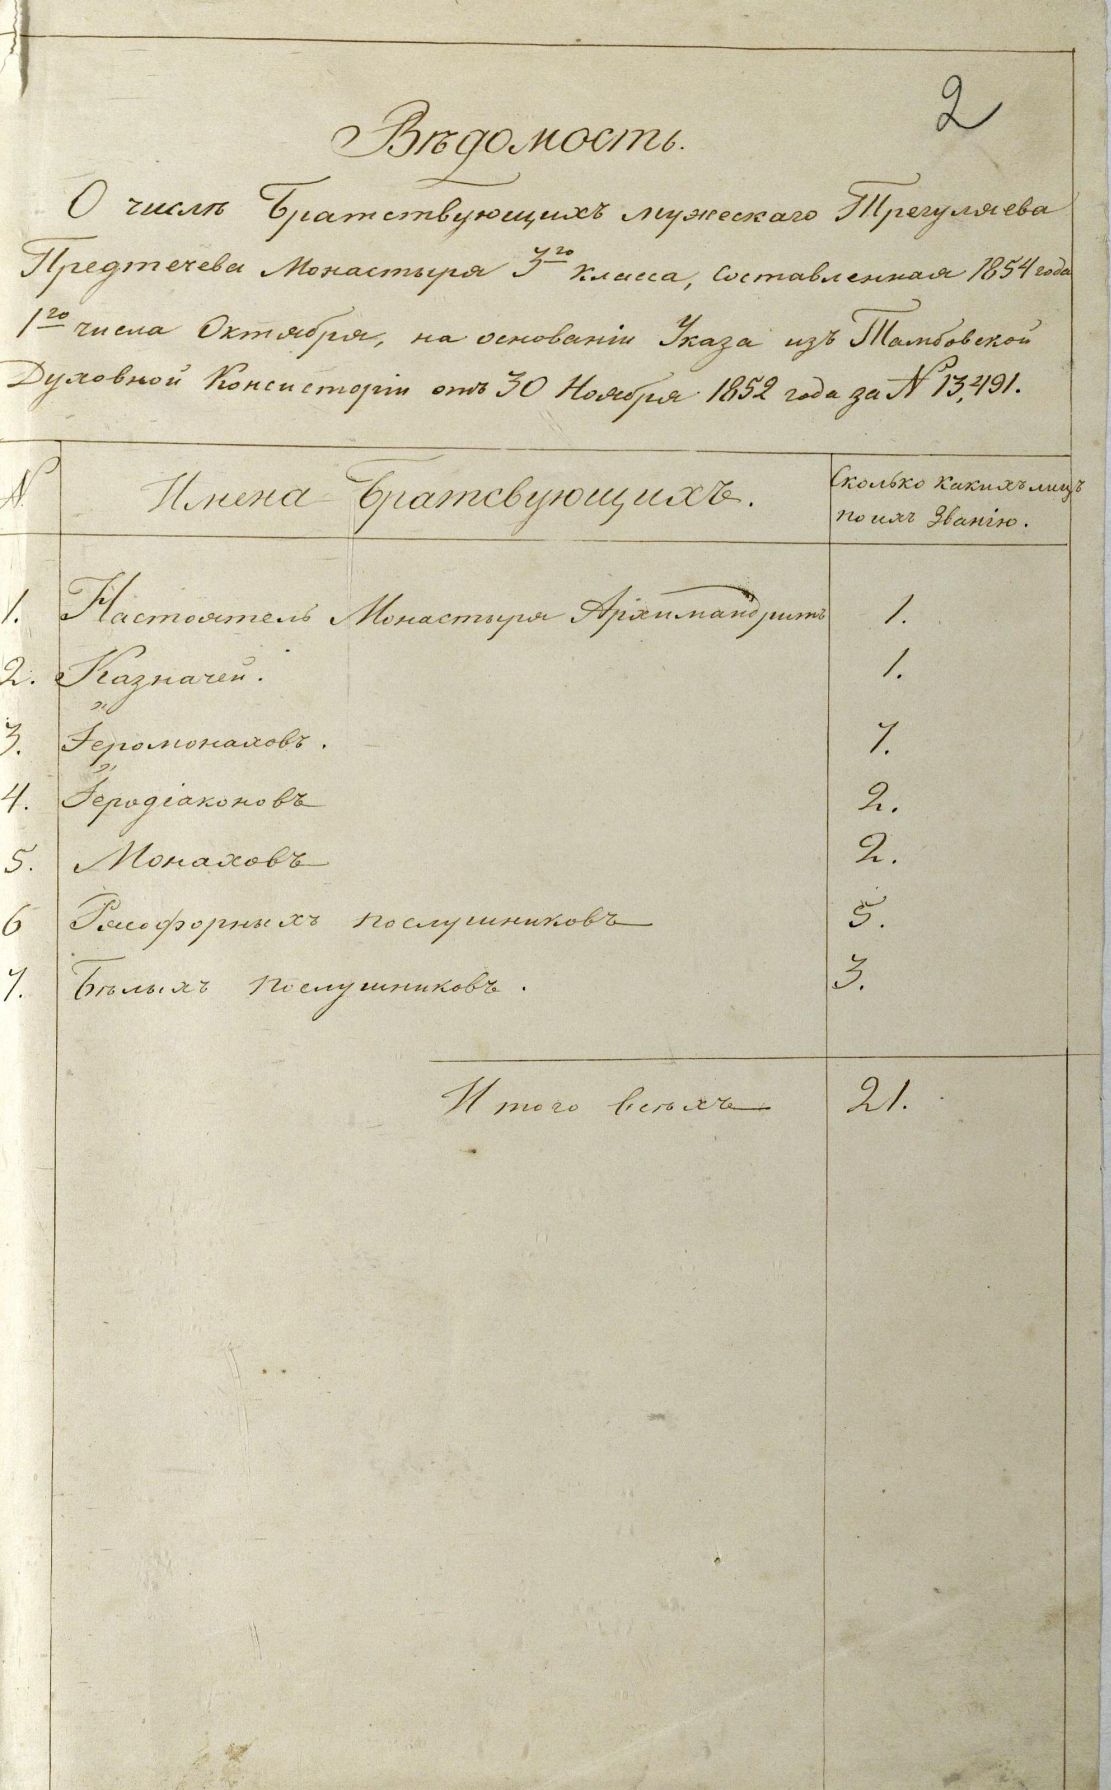 2
Вѣдомость.
О числѣ Братствующихъ мужескаго Трегуляева
Предтечева Монастыря 3го класса, составленная 1854 года
1го числа Октября, на основаніи Указа изъ Тамбовской
Духовной Консисторіи отъ 30 Ноября 1852 года за № 13,491.
№ Имена Братсвующихъ. Сколько какихъ лицъ
по ихъ Званію.
1. Настоятель Монастыря Архимандритъ 1.
2. Казначей. 1.
3. Іеромонаховъ. 7.
4. Іеродіаконовъ 2.
5. Монаховъ 2.
6 Рясофорныхъ послушниковъ 5.
7. Бѣлыхъ послушниковъ. 3.
Итого всѣхъ 21.